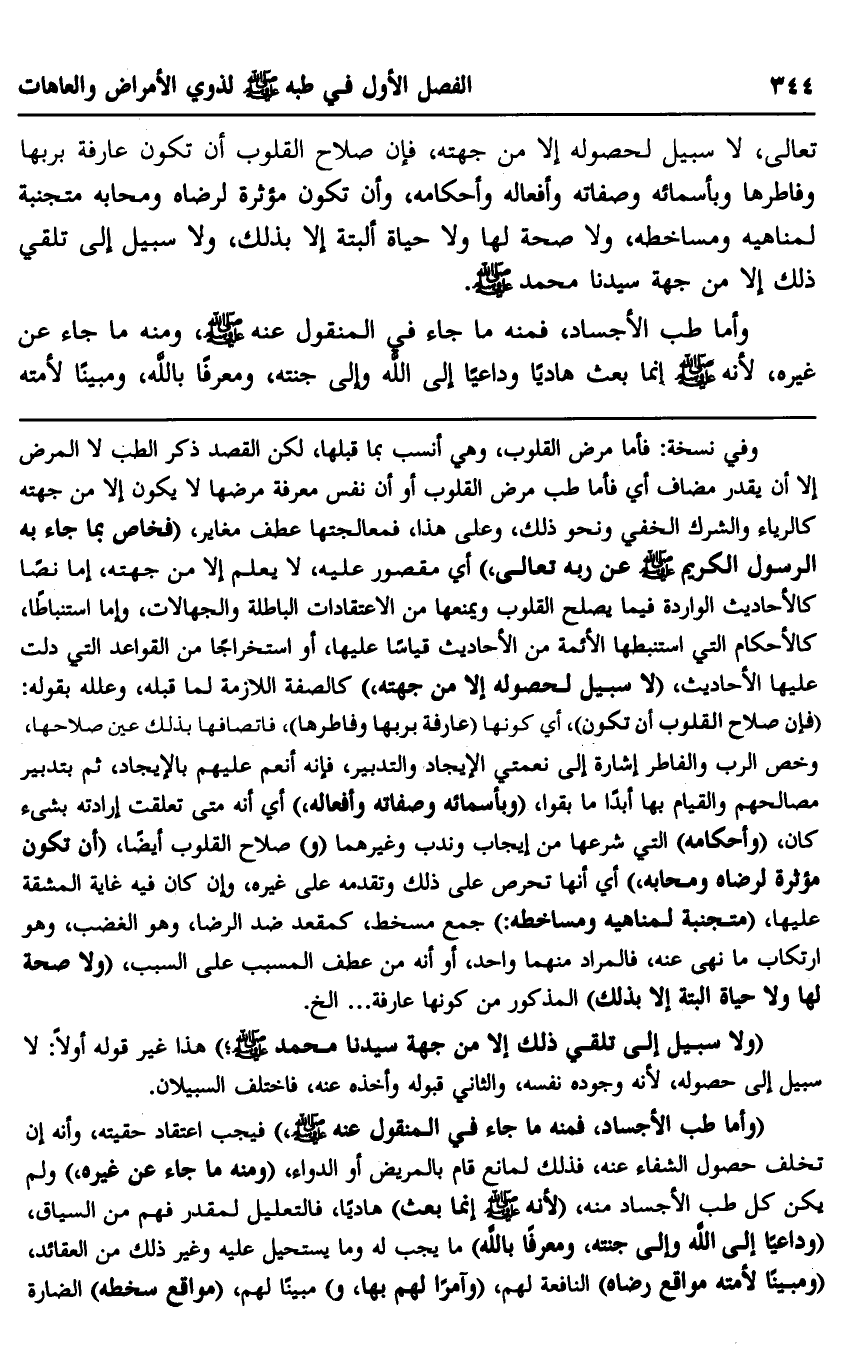 ٣٤٤ الفصل الأول في طبه ﷺ لذوي الأمراض والعاهات
تعالى، لا سبيل لحصوله إلا من جهته، فإن صلاح القلوب أن تكون عارفة بربها
وفاطرها وبأسمائه وصفاته وأفعاله وأحكامه، وأن تكون مؤثرة لرضاه ومحابه متجنبة
لمناهيه ومساخطه، ولا صحة لها ولا حياة ألبتة إلا بذلك، ولا سبيل إلى تلقي
ذلك إلا من جهة سيدنا محمد ﷺ.
وأما طب الأجساد، فمنه ما جاء في المنقول عنه ﷺ، ومنه ما جاء عن
غيره، لأنه ﷺ إنما بعث هاديًا وداعيًا إلى اللَّه وإلى جنته، ومعرفًا باللَّه، ومبينًا لأمته
وفي نسخة: فأما مرض القلوب، وهي أنسب بما قبلها، لكن القصد ذكر الطب لا المرض
إلا أن يقدر مضاف أي فأما طب مرض القلوب أو أن نفس معرفة مرضها لا يكون إلا من جهته
كالرياء والشرك الخفي ونحو ذلك، وعلى هذا، فمعالجتها عطف مغاير، (فخاص بما جاء به
الرسول الكريم ﷺ عن ربه تعالى،) أي مقصور عليه، لا يعلم إلا من جهته، إما نصًا
كالأحاديث الواردة فيما يصلح القلوب ويمنعها من الاعتقادات الباطلة والجهالات، وإما استنباطًا،
كالأحكام التي استنبطها الأئمة من الأحاديث قياسًا عليها، أو استخراجًا من القواعد التي دلت
عليها الأحاديث، (لا سبيل لحصوله إلا من جهته،) كالصفة اللازمة لما قبله، وعلله بقوله:
(فإن صلاح القلوب أن تكون)، أي كونها (عارفة بربها وفاطرها)، فاتصافها بذلك عين صلاحها،
وخص الرب والفاطر إشارة إلى نعمتي الإيجاد والتدبير، فإنه أنعم عليهم بالإيجاد، ثم بتدبير
مصالحهم والقيام بها أبدًا ما بقوا، (وبأسمائه وصفاته وأفعاله،) أي أنه متى تعلقت إرادته بشىء
كان، (وأحكامه) التي شرعها من إيجاب وندب وغيرهما (و) صلاح القلوب أيضًا، (أن تكون
مؤثرة لرضاه ومحابه،) أي أنها تحرص على ذلك وتقدمه على غيره، وإن كان فيه غاية المشقة
عليها، (متجنبة لمناهيه ومساخطه:) جمع مسخط، كمقعد ضد الرضا، وهو الغضب، وهو
ارتكاب ما نهى عنه، فالمراد منهما واحد، أو أنه من عطف المسبب على السبب، (ولا صحة
لها ولا حياة البتة إلا بذلك) المذكور من كونها عارفة... الخ.
(ولا سبيل إلى تلقي ذلك إلا من جهة سيدنا محمد ﷺ؛) هذا غير قوله أولاً: لا
سبيل إلى حصوله، لأنه وجوده نفسه، والثاني قبوله وأخذه عنه، فاختلف السبيلان.
(وأما طب الأجساد، فمنه ما جاء في المنقول عنه ﷺ،) فيجب اعتقاد حقيته، وأنه إن
تخلف حصول الشفاء عنه، فذلك لمانع قام بالمريض أو الدواء، (ومنه ما جاء عن غيره،) ولم
يكن كل طب الأجساد منه، (لأنه ﷺ إنما بعث) هاديًا، فالتعليل لمقدر فهم من السياق،
(وداعيًا إلى اللَّه وإلى جنته، ومعرفًا باللَّه) ما يجب له وما يستحيل عليه وغير ذلك من العقائد،
(ومبينًا لأمته مواقع رضاه) النافعة لهم، (وآمرًا لهم بها، و) مبينًا لهم، (مواقع سخطه) الضارة